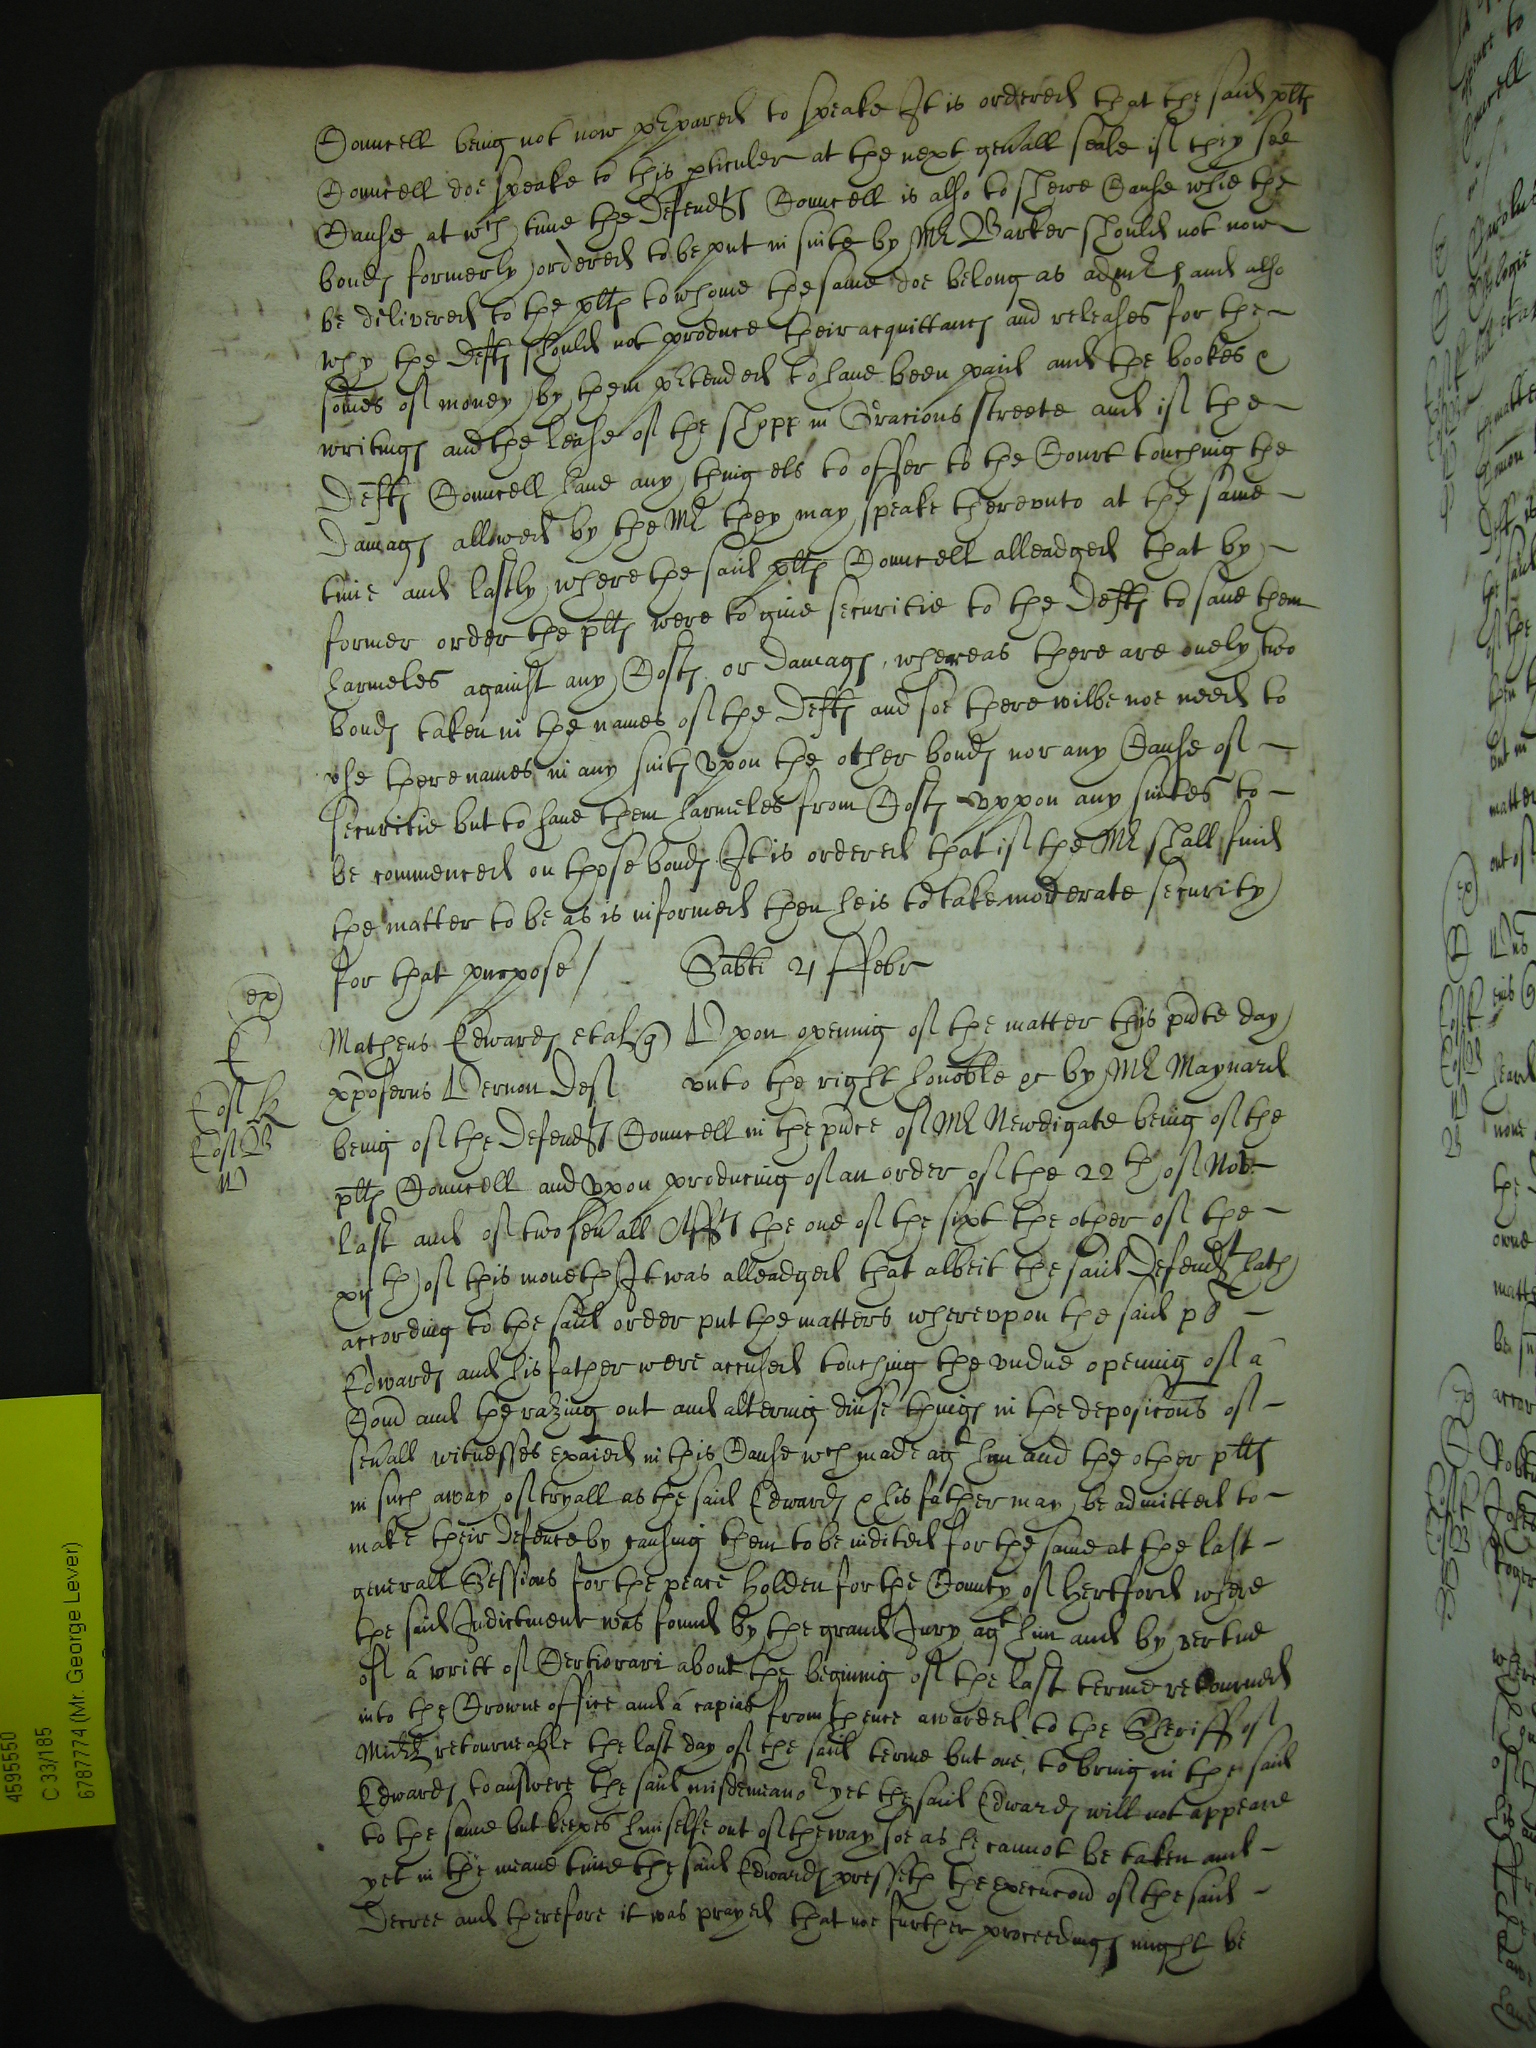 Councell being not now prepared to speake It is ordered that the said plts
Councell doe speake to this pticuler at the next genall seale if they see
Cause at wch time the Defendts Councell is also to shewe Cause whie the
bonds formerly ordered to be put in suite by Mr Barker should not now
be delivered to the plts to whome the same doe belong as admrs and also
why the Defts should not produce their acquittancs and releases for the
somes of money by them prtended to haue been paid and the bookes &
writings and the lease of the shopp in Gracious streete and if the
Defts Councell haue any thing els to offer to the Court touching the
Damags allowed by the Mr they may speake therevnto at the same
time and lastly where the said plts Councell alleadged that by
former order the plts were to giue securitie to the Defts to saue them
harmeles against any Costs or damags, whereas there are onely two
bonds taken in the names of the Defts and soe there wilbe noe need to
vse there names in any suits vpon the other bonds nor any Cause of
securitie but to saue them harmeles from Costs vppon any suites to
be commenced on those bonds It is ordered that if the Mr shall find
the matter to be as is informed then he is to take moderate security
for that purpose /
Sabti 21 ffebr
ex
Matheus Edwards et al q
xpoferus Vernon Def
Vpon opening of the matter this pnte day
vnto the right honoble &c by Mr Maynard
being of the Defendts Councell in the pnce of Mr Newdigate being of the
plts Councell and vpon producing of an order of the 22th of Nobr
last and of two seuall Affts the one of the sixt the other of the
xijth of this moneth It was alleadged that albeit the said Defendt hath
according to the said order put the matters wherevpon the said
Edwards and his father were accused touching the vndue opening of a
Comd and the razing out and altering diuse things in the deposicons of
seuall witnesses exaied in this Cause wch made agt him and the other plts
in such away of tryall as the said Edwards & his father may be admitted to
make their defence by causing them to be indited for the same at the last
generall Sessions for the peace holden for the County of Hertford where
the said Indictment was found by the grand Jury agt him and by vertue
of a writt of Certiorari about the begining of the last terme retourned
into the Crowne office and a capias from thence awarded to the Sheriff of
Middx retourneable the last day of the said terme but one, to bring in the said
Edwards to answere the said misdemeanor yet the said Edwards will not appeare
to the same but keepes himselfe out of the way soe as he cannot be taken and
yet in the meane time the said Edwards presseth the execucon of the said
Decree and therefore it was prayed that noe further proceedings might be
4595550
C 33/185
6787774 (Mr. George Lever)